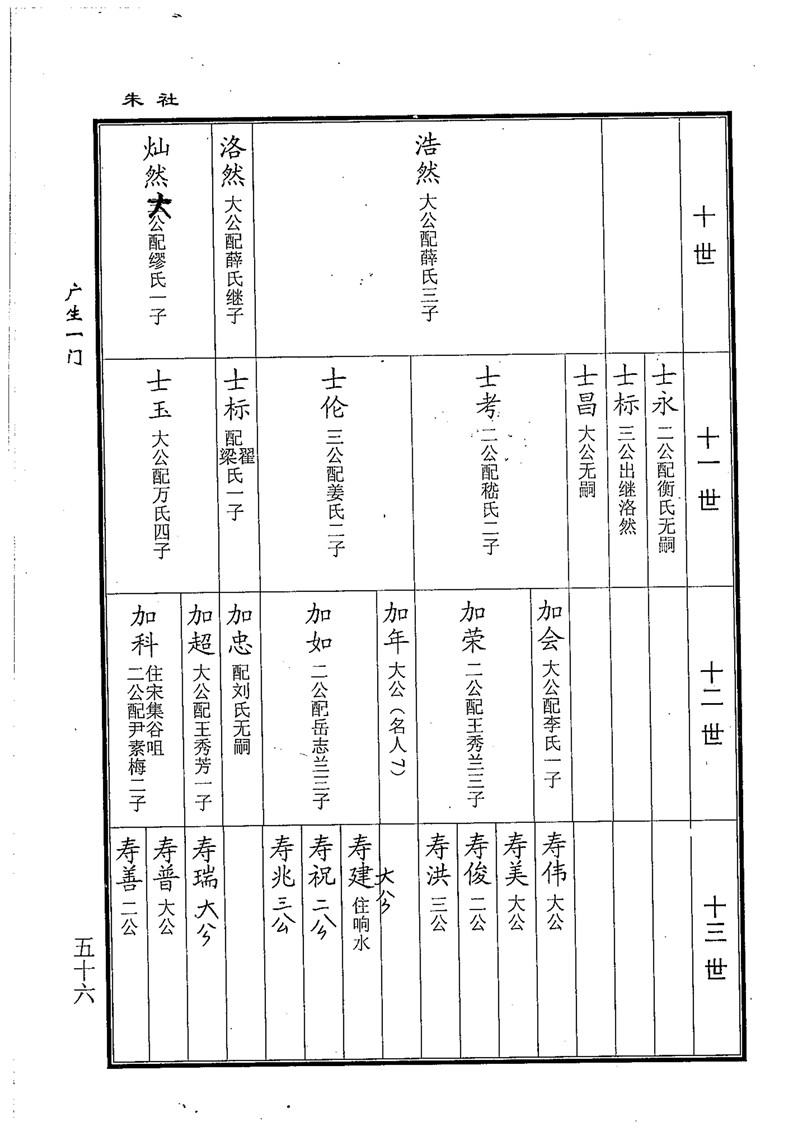 朱社
十世
浩然 大公配薛氏三子
洛然 大公配薛氏继子
灿然 大公配缪氏一子
广生一门
十一世
士永 二公配衡氏无嗣
士标 三公出继洛然
士昌 大公无嗣
士考 二公配嵇氏二子
士伦 三公配姜氏二子
士标 配翟梁氏一子
士玉 大公配万氏四子
十二世
加会 大公配李氏一子
加荣 二公配王秀兰三子
加年 大公(名人7)
加如 二公配岳志兰三子
加忠 配刘氏无嗣
加超 大公配王秀芳一子
加科 住宋集谷咀
二公配尹素梅二子
十三世
寿伟 大公
寿美 大公
寿俊 二公
寿洪 三公
寿建 住响水 大公
寿祝 二公
寿兆 三公
寿瑞 大公
寿普 大公
寿善 二公
五十六